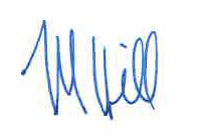 M Hill